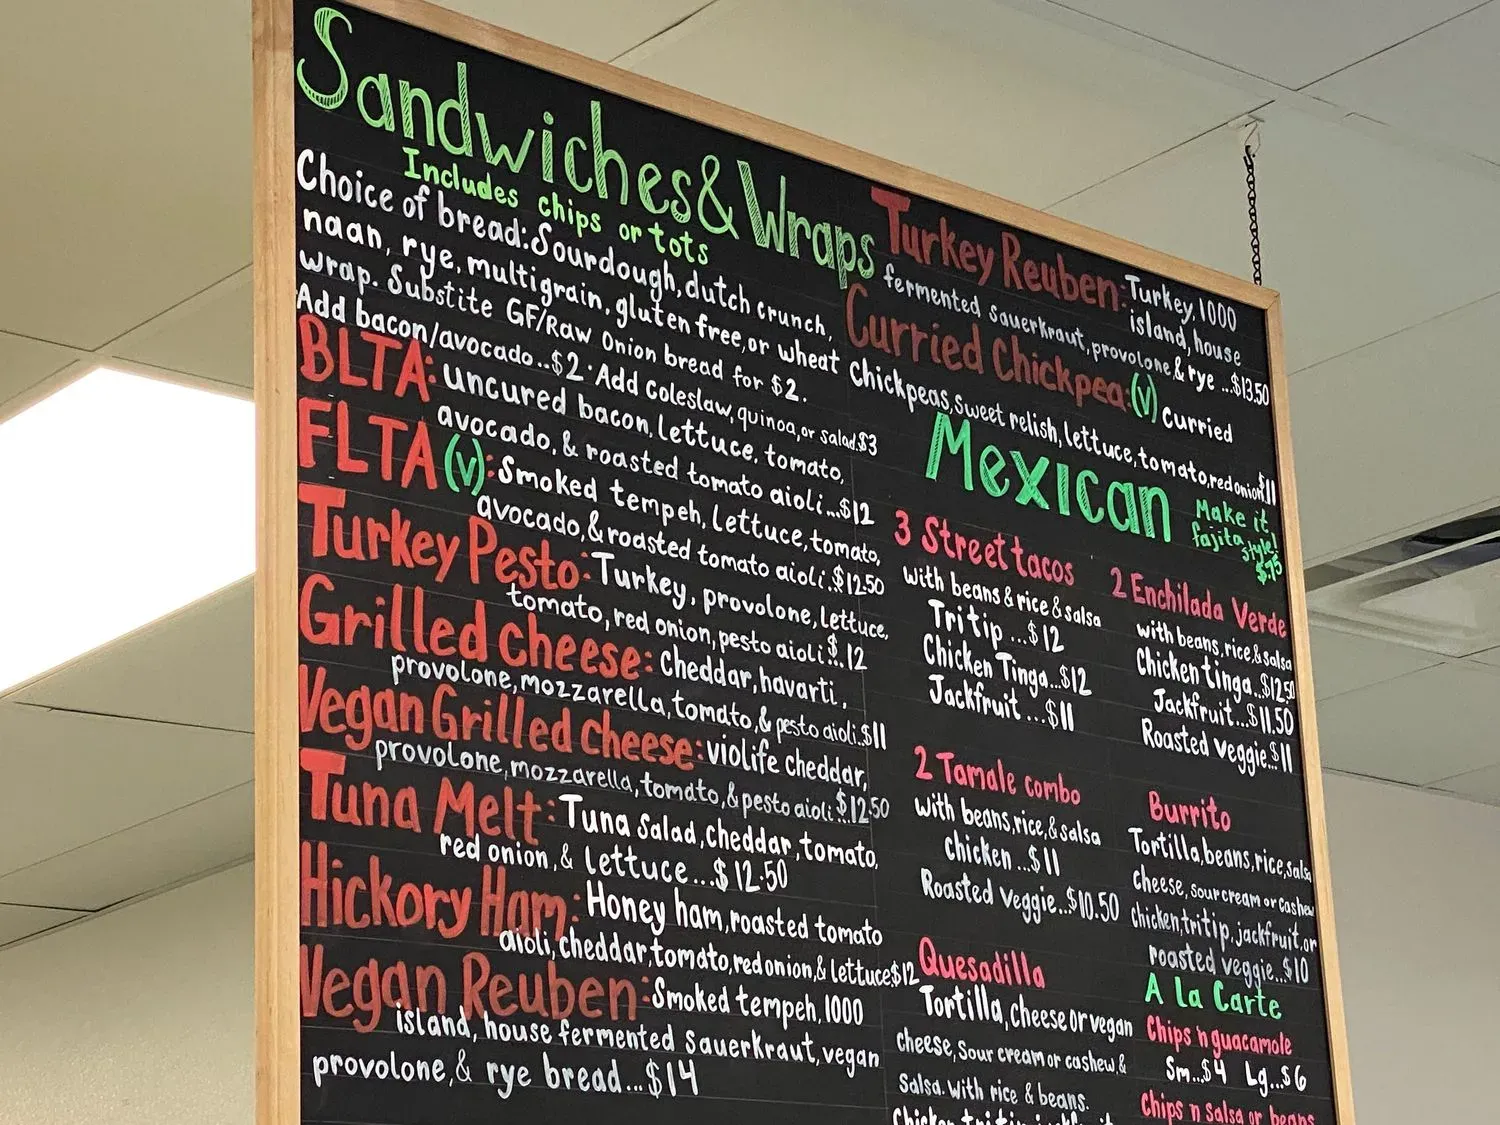 Sandwiches & Wraps
Includes chips or tots
Choice of bread: Sourdough, dutch crunch,
naan, rye, multigrain, gluten free, or wheat
wrap. Substite GF/Raw Onion bread for $2.
Add bacon/avocado..$2 · Add coleslaw, quinoa, or salad.$3
BLTA: uncured bacon, lettuce, tomato,
avocado, & roasted tomato aioli...$12
FLTA (v): Smoked tempeh, lettuce, tomato,
avocado, & roasted tomato aioli..$12.50
Turkey Pesto: Turkey, provolone, lettuce,
tomato, red onion, pesto aioli $...12
Grilled Cheese: Cheddar, havarti,
provolone, mozzarella, tomato, & pesto aioli.$11
Vegan Grilled cheese: violife cheddar,
provolone, mozzarella, tomato, & pesto aioli..$12.50
Tuna Melt: Tuna salad, cheddar, tomato,
red onion, & lettuce...$12.50
Hickory Ham: Honey ham, roasted tomato
aioli, cheddar, tomato, red onion, & lettuce $12
Vegan Reuben: Smoked tempeh, 1000
island, house fermented sauerkraut, vegan
provolone, & rye bread...$14
Turkey Reuben: Turkey, 1000
island, house
fermented sauerkraut, provolone & rye ...$13.50
Curried Chickpea: (v) Curried
Chickpeas, sweet relish, lettuce, tomato, red onion $11
Mexican
Make it
fajita style!
$.75
3 Street tacos
with beans & rice & salsa
Tritip ...$12
Chicken Tinga...$12
Jackfruit ...$11
2 Enchilada Verde
with beans, rice, & salsa
Chicken tinga..$12.50
Jackfruit...$11.50
Roasted veggie..$11
2 Tamale combo
with beans, rice, & salsa
chicken ..$11
Roasted veggie...$10.50
Burrito
Tortilla, beans, rice, salsa
cheese, sour cream or cashew
chicken, tritip, jackfruit, or
roasted veggie..$10
Quesadilla
Tortilla, cheese or vegan
cheese, sour cream or cashew &
salsa. with rice & beans.
Chicken, tritip, jackfruit
A la Carte
Chips 'n guacamole
Sm...$4 Lg...$6
Chips 'n salsa or beans